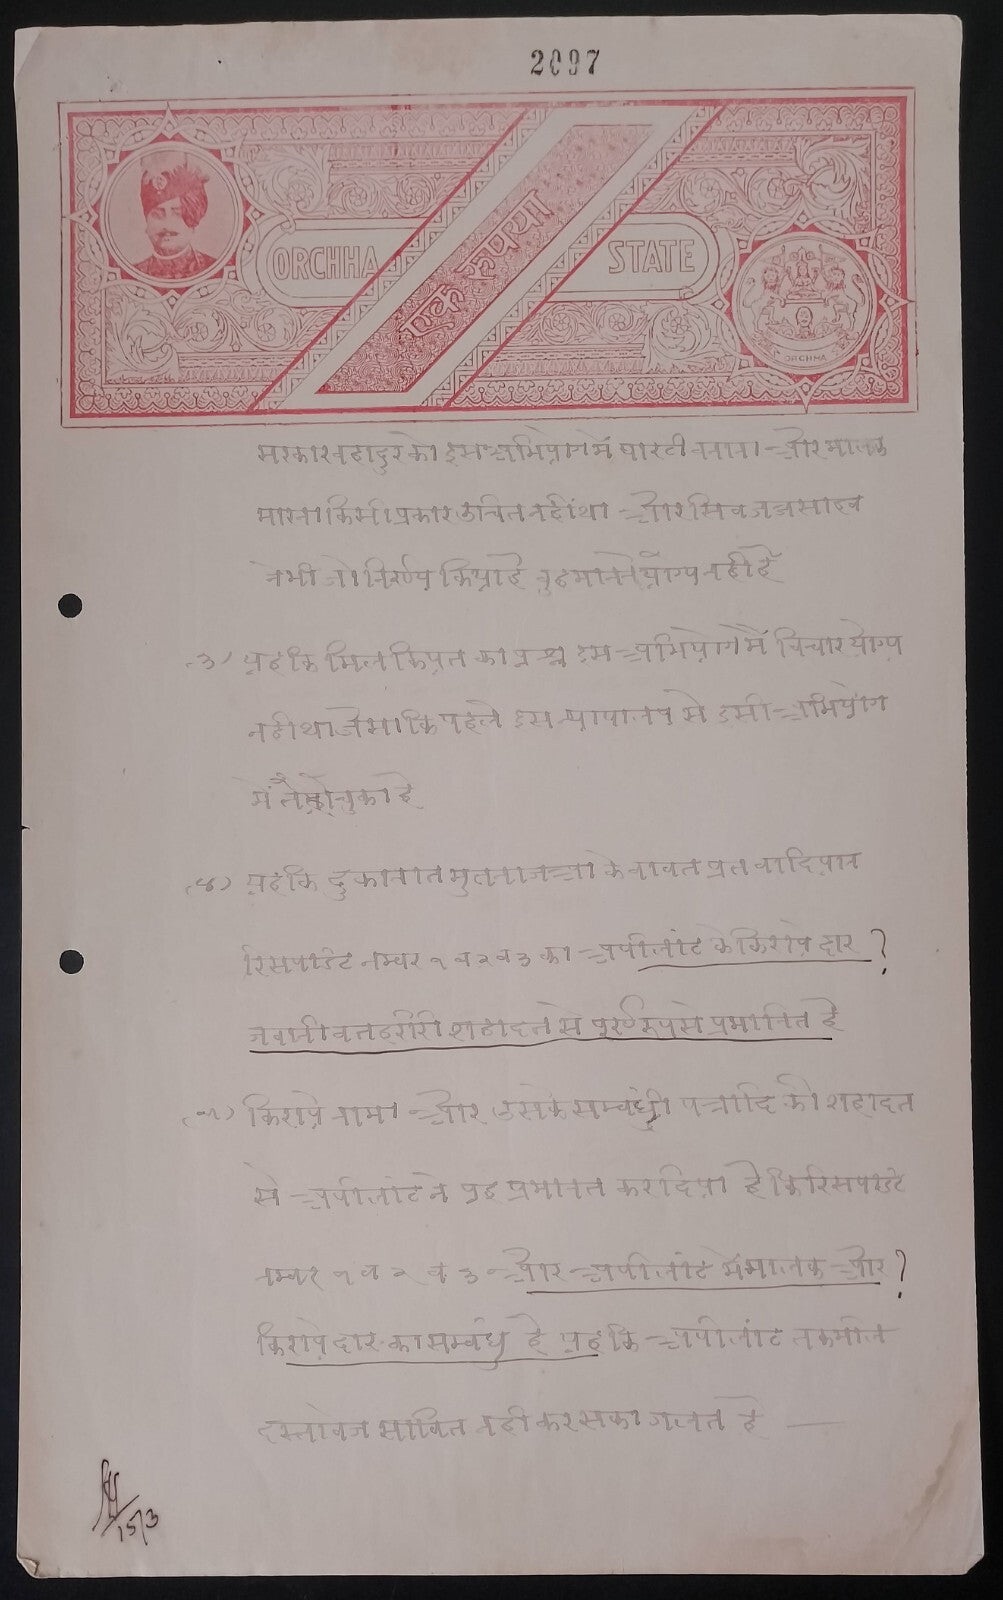 2097
ORCHHA STATE
एक रुपया
ORCHHA
सरकार बहादुर को इस अभियोग में पारटी बनाना और मालक
मानना किसी प्रकार उचित नहीं था और सिवजज साहब
ने भी जो निर्णय किया है वुह मानने योग्य नहीं है
(३) यह कि मिलकियत का प्रश्न इस अभियोग में विचार योग्य
नहीं था जैसा कि पहले इस न्यायालय से इसी अभियोग
में तै हो चुका है
(४) यह कि दुकानात मुतनाजआ के बाबत प्रतवादियान
रिसपाडेंट नम्बर १ व २ व ३ का अपीलांट के किरायेदार ?
जबानी व तहरीरी शहादत से पूर्ण रूप से प्रमानित है
(५) किराये नामा और उसके सम्बंधी पत्रादि की शहादत
से अपीलांट ने यह प्रमानत कर दिया है कि रिसपाडेंट
नम्बर १ व २ व ३ और अपीलांट में मालक और ?
किरायेदार का सम्बंध है यह कि अपीलांट तकमील
दस्तावेज साबित नहीं कर सका गलत है
15/3